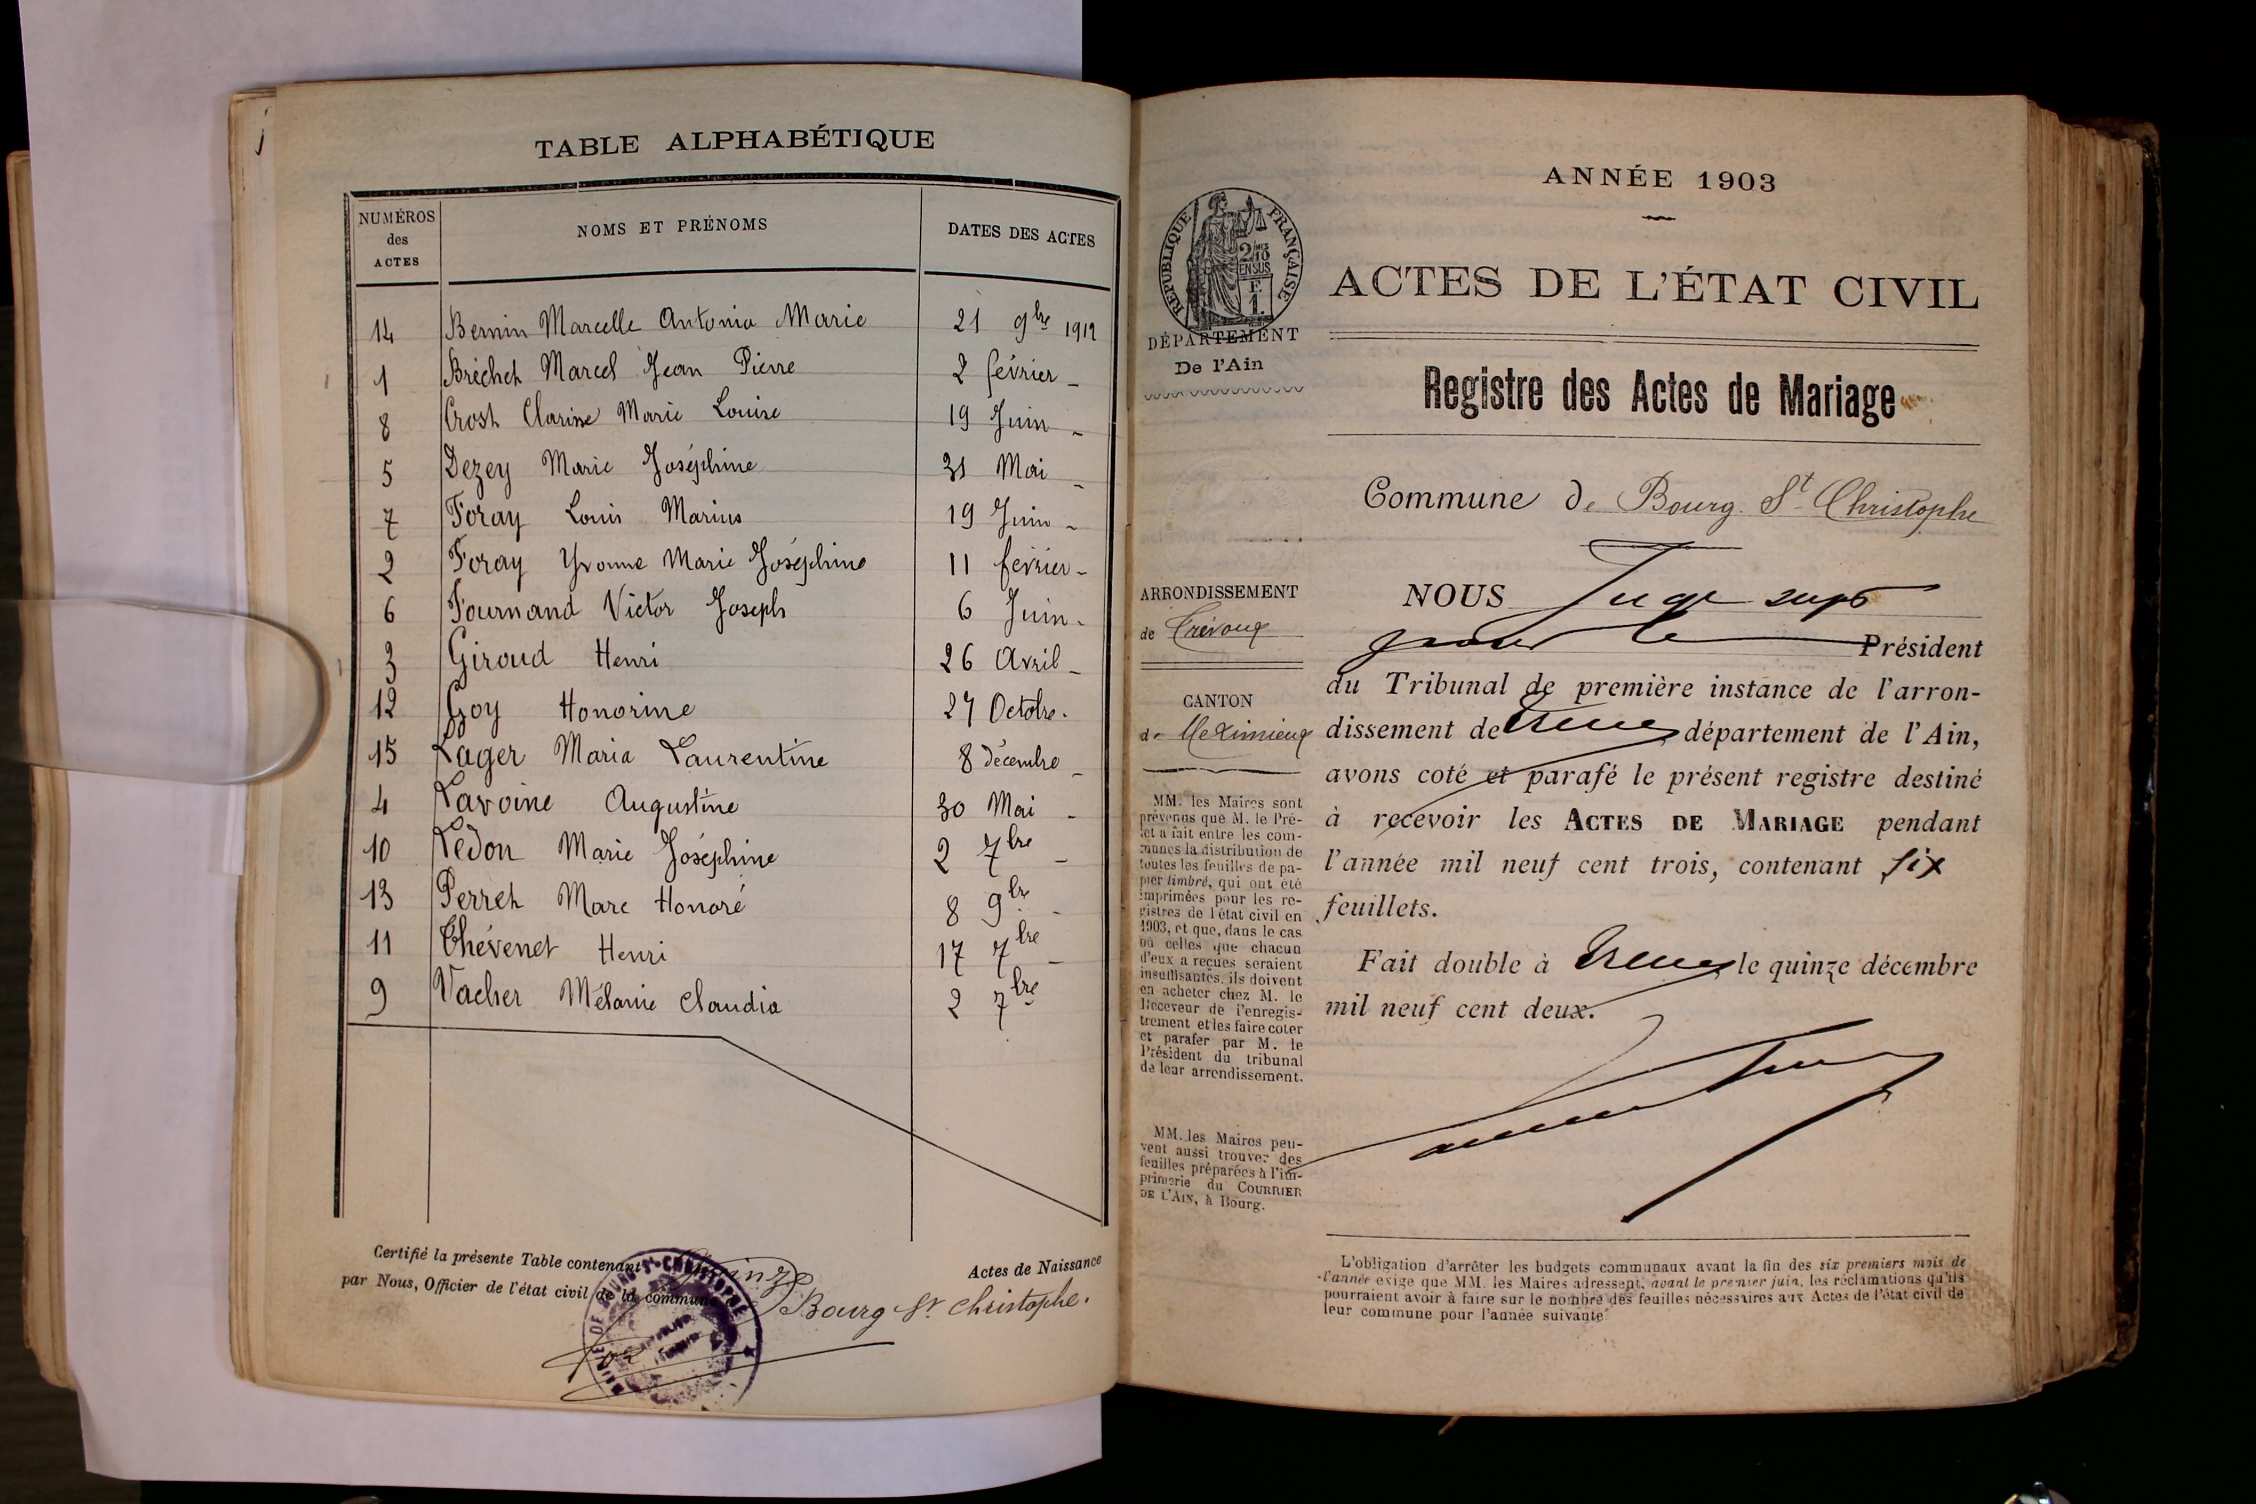 TABLE ALPHABÉTIQUE
NUMÉROS des ACTES NOMS ET PRÉNOMS DATES DES ACTES
14 Bernin Marcelle Antonia Marie 21 9bre 1912
1 Bréchet Marcel Jean Pierre 2 février -
8 Crost Clarisse Marie Louise 19 Juin -
5 Dezey Marie Joséphine 31 Mai -
7 Foray Louis Marius 19 Juin -
2 Foray Yvonne Marie Joséphine 11 février -
6 Fournand Victor Joseph 6 Juin -
3 Giroud Henri 26 Avril -
12 Goy Honorine 27 Octobre -
15 Lager Maria Laurentine 8 décembre -
4 Lavoine Augustine 30 Mai -
10 Ledon Marie Joséphine 2 7bre -
13 Perret Marc Honoré 8 9bre -
11 Thévenet Henri 17 7bre -
9 Vacher Mélanie Claudia 2 7bre
Certifié la présente Table contenant quinze Actes de Naissance
par Nous, Officier de l'état civil de la commune Bourg St Christophe.
ANNÉE 1903
RÉPUBLIQUE FRANÇAISE
2/10 EN SUS
F. 1.
DÉPARTEMENT
De l'Ain
ARRONDISSEMENT
de Trévoux
CANTON
de Meximieux
MM. les Maires sont
prévenus que M. le Pré-
fet a fait entre les com-
munes la distribution de
toutes les feuilles de pa-
pier timbré, qui ont été
imprimées pour les re-
gistres de l'état civil en
1903, et que, dans le cas
où celles que chacun
d'eux a reçues seraient
insuffisantes, ils doivent
en acheter chez M. le
Receveur de l'enregis-
trement et les faire coter
et parafer par M. le
Président du tribunal
de leur arrondissement.
MM. les Maires peu-
vent aussi trouver des
feuilles préparées à l'im-
primerie du COURRIER
DE L'AIN, à Bourg.
ACTES DE L'ÉTAT CIVIL
Registre des Actes de Mariage
Commune de Bourg St Christophe
NOUS Juge supt
pour le Président
du Tribunal de première instance de l'arron-
dissement de Trévoux département de l'Ain,
avons coté et parafé le présent registre destiné
à recevoir les ACTES DE MARIAGE pendant
l'année mil neuf cent trois, contenant six
feuillets.
Fait double à Trévoux le quinze décembre
mil neuf cent deux.
L'obligation d'arrêter les budgets communaux avant la fin des six premiers mois de
l'année exige que MM. les Maires adressent, avant le premier juin, les réclamations qu'ils
pourraient avoir à faire sur le nombre des feuilles nécessaires aux Actes de l'état civil de
leur commune pour l'année suivante